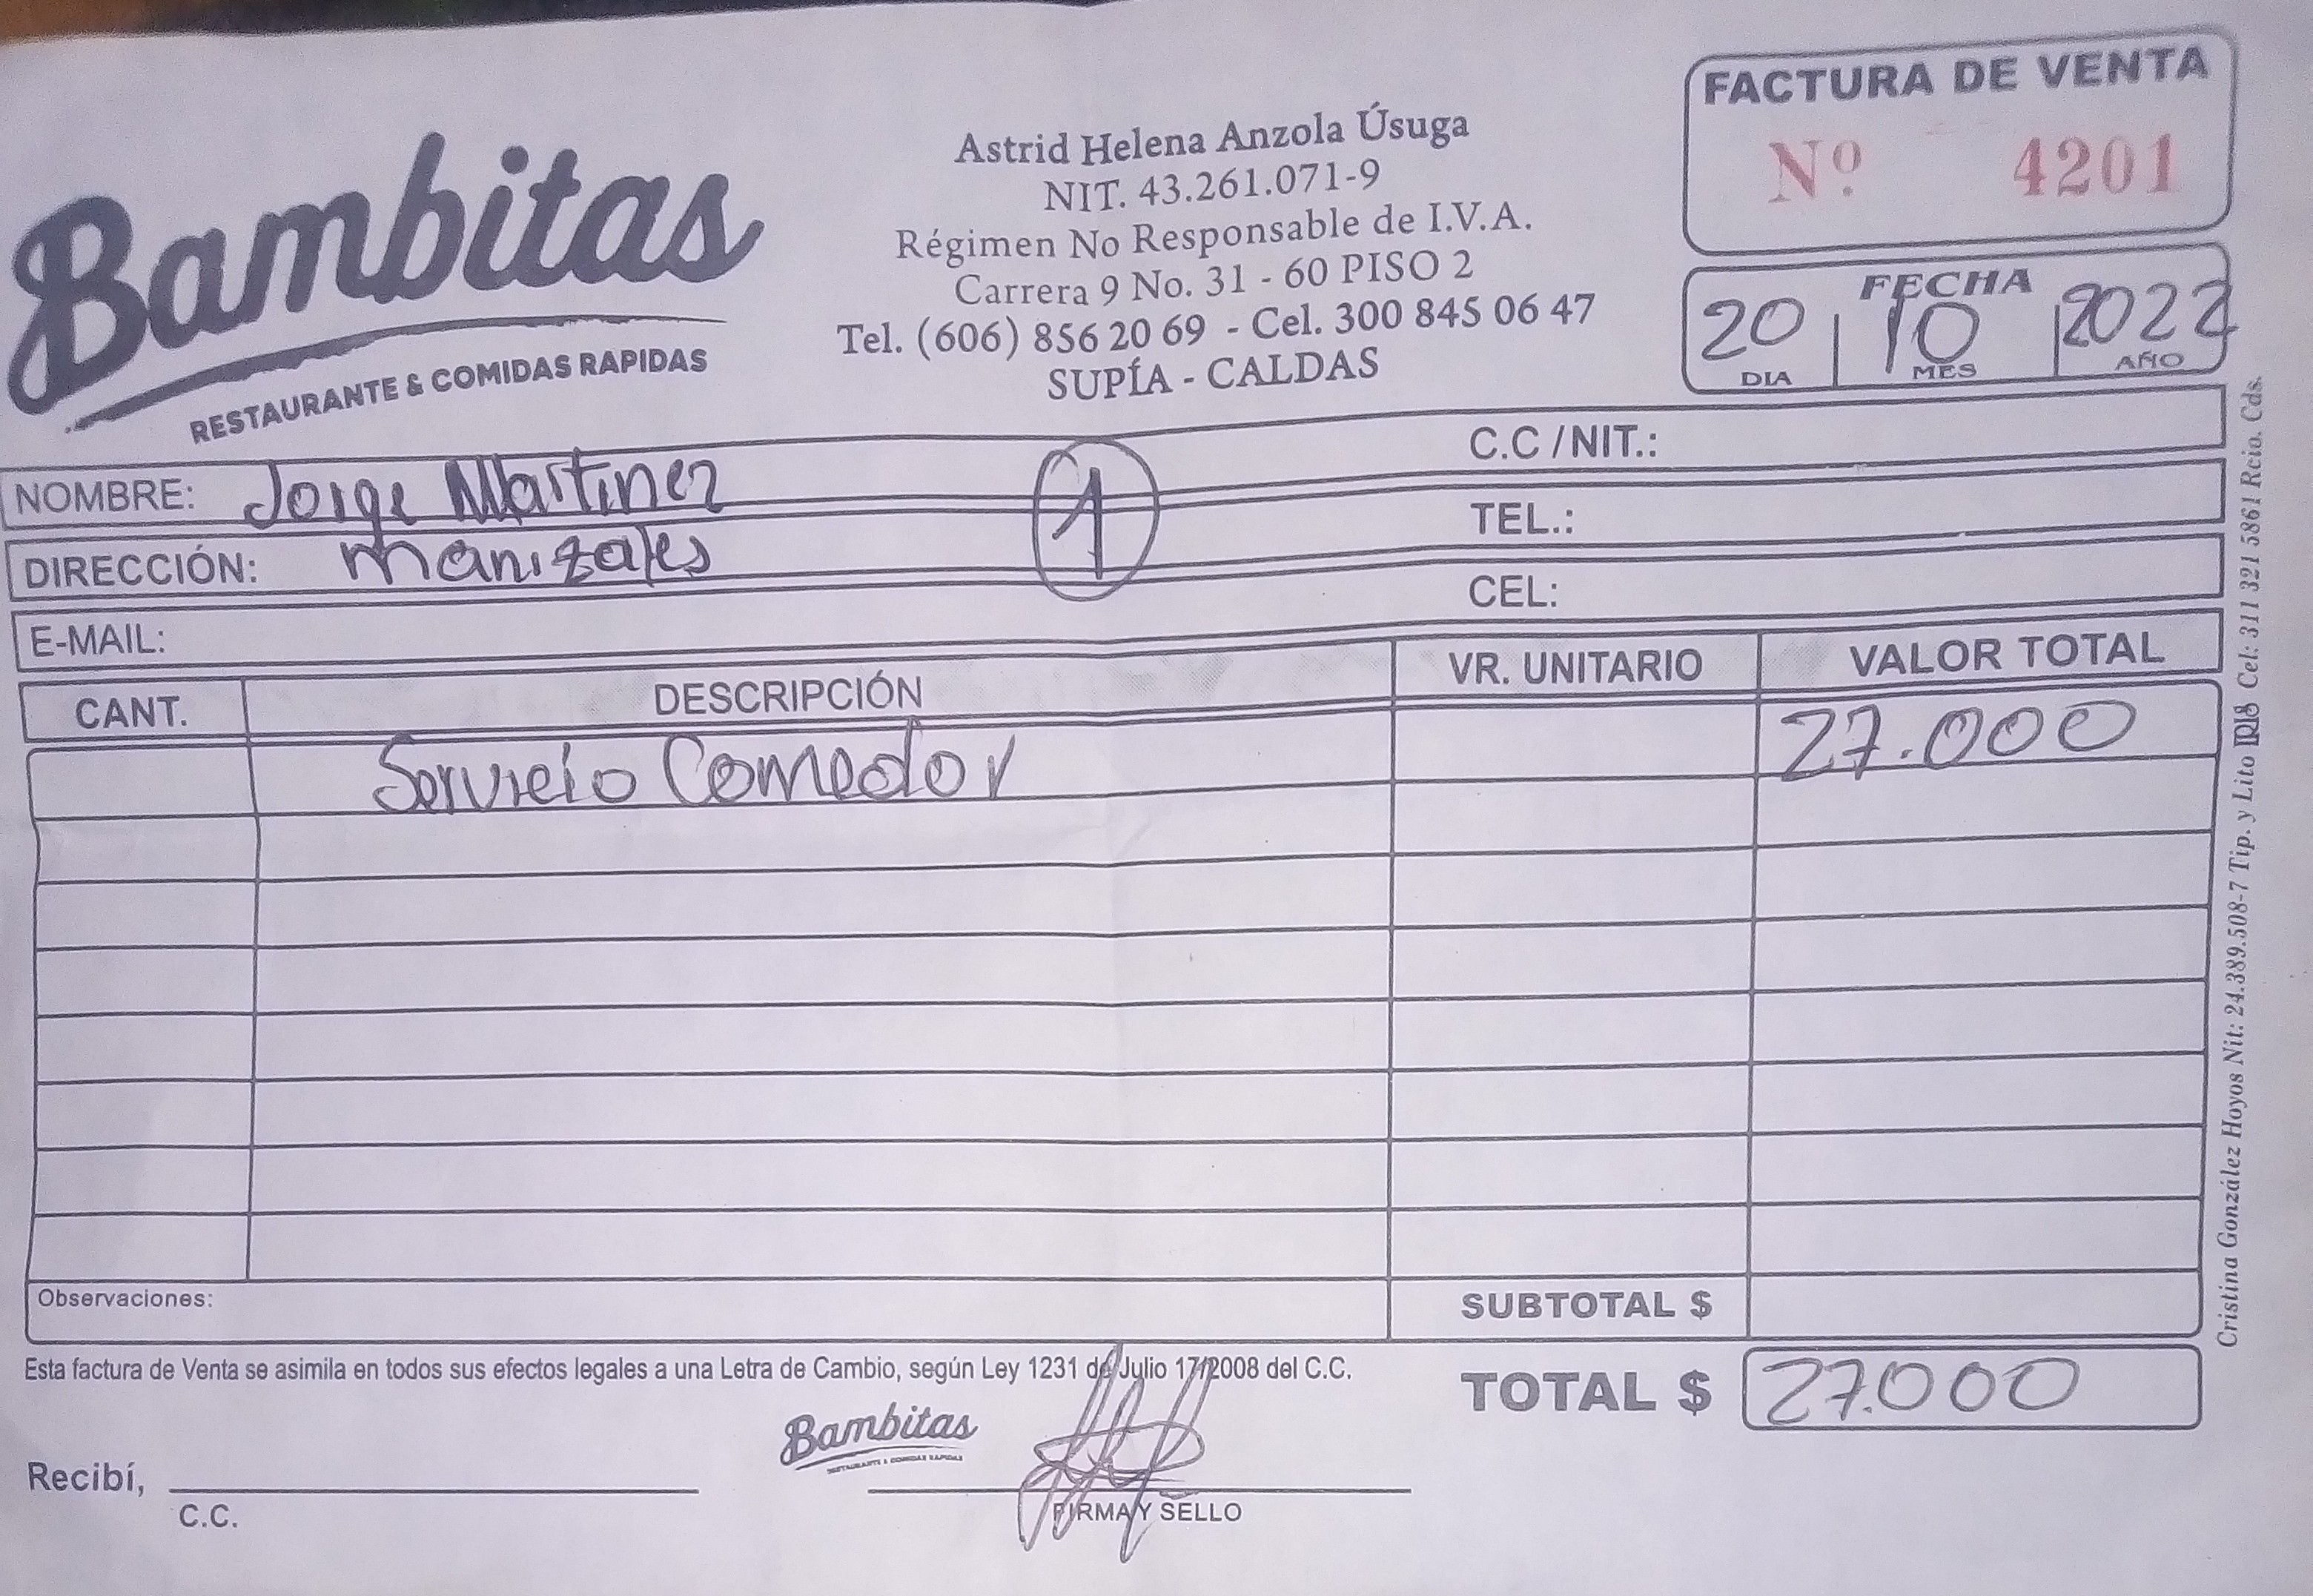 Bambitas
RESTAURANTE & COMIDAS RAPIDAS
Astrid Helena Anzola Úsuga
NIT. 43.261.071-9
Régimen No Responsable de I.V.A.
Carrera 9 No. 31 - 60 PISO 2
Tel. (606) 856 20 69 - Cel. 300 845 06 47
SUPÍA - CALDAS
FACTURA DE VENTA
Nº 4201
FECHA
20 10 2022
DIA MES AÑO
NOMBRE: Jorge Martinez
C.C /NIT.:
1
DIRECCIÓN: manizales
TEL.:
E-MAIL:
CEL:
CANT. DESCRIPCIÓN VR. UNITARIO VALOR TOTAL
Servicio Comedor 27.000
Observaciones:
SUBTOTAL $
Esta factura de Venta se asimila en todos sus efectos legales a una Letra de Cambio, según Ley 1231 de Julio 17/2008 del C.C.
TOTAL $ 27.000
Bambitas
RESTAURANTE & COMIDAS RAPIDAS
Recibí,
C.C.
FIRMA Y SELLO
Cristina González Hoyos Nit: 24.389.508-7 Tip. y Lito IRIS Cel: 311 321 5861 Rcio. Cds.